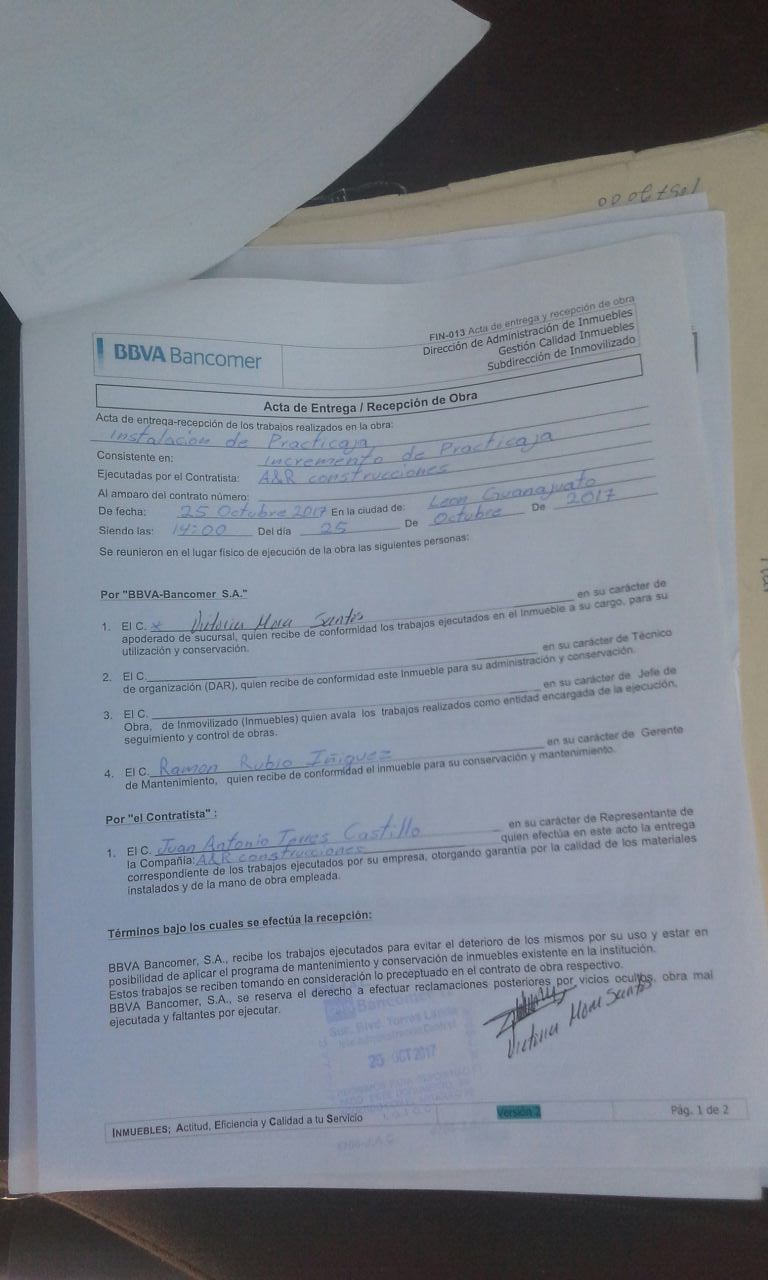 BBVA Bancomer
FIN-013 Acta de entrega y recepción de obra
Dirección de Administración de Inmuebles
Gestión Calidad Inmuebles
Subdirección de Inmovilizado
Acta de Entrega / Recepción de Obra
Acta de entrega-recepción de los trabajos realizados en la obra:
Instalación de Practicaja
Consistente en: Incremento de Practicaja
Ejecutadas por el Contratista: A&R construcciones
Al amparo del contrato número:
De fecha: 25 Octubre 2017 En la ciudad de: Leon Guanajuato
Siendo las: 14:00 Del día 25 De Octubre De 2017
Se reunieron en el lugar físico de ejecución de la obra las siguientes personas:
Por "BBVA-Bancomer S.A."
1. El C. Victoria Mora Santos en su carácter de
apoderado de sucursal, quien recibe de conformidad los trabajos ejecutados en el Inmueble a su cargo, para su
utilización y conservación.
2. El C. en su carácter de Técnico
de organización (DAR), quien recibe de conformidad este Inmueble para su administración y conservación.
3. El C. en su carácter de Jefe de
Obra, de Inmovilizado (Inmuebles) quien avala los trabajos realizados como entidad encargada de la ejecución,
seguimiento y control de obras.
4. El C. Ramon Rubio Iñiguez en su carácter de Gerente
de Mantenimiento, quien recibe de conformidad el inmueble para su conservación y mantenimiento.
Por "el Contratista" :
1. El C. Juan Antonio Torres Castillo en su carácter de Representante de
la Compañía: A&R construcciones quien efectúa en este acto la entrega
correspondiente de los trabajos ejecutados por su empresa, otorgando garantía por la calidad de los materiales
instalados y de la mano de obra empleada.
Términos bajo los cuales se efectúa la recepción:
BBVA Bancomer, S.A., recibe los trabajos ejecutados para evitar el deterioro de los mismos por su uso y estar en
posibilidad de aplicar el programa de mantenimiento y conservación de inmuebles existente en la institución.
Estos trabajos se reciben tomando en consideración lo preceptuado en el contrato de obra respectivo.
BBVA Bancomer, S.A., se reserva el derecho a efectuar reclamaciones posteriores por vicios ocultos, obra mal
ejecutada y faltantes por ejecutar.
Bancomer
Suc. Blvd. Torres Landa
25 OCT 2017
Victoria Mora Santos
INMUEBLES; Actitud, Eficiencia y Calidad a tu Servicio
Versión 2
Pág. 1 de 2